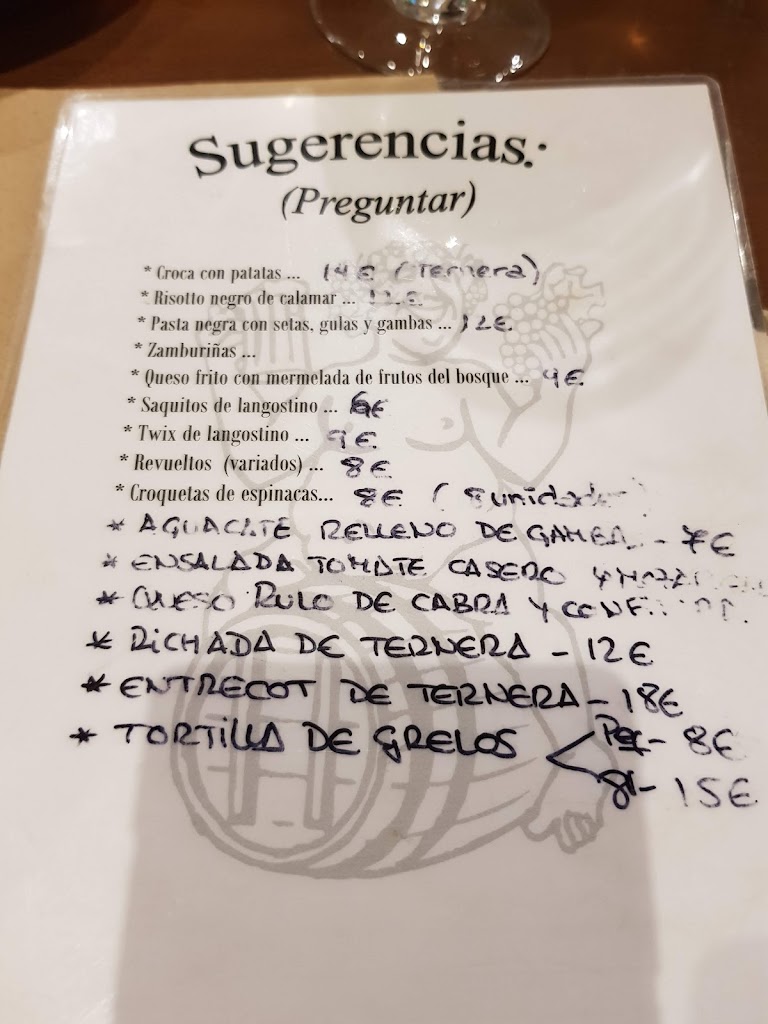 Sugerencias.·
(Preguntar)
* Croca con patatas ... 14€ (Ternera)
* Risotto negro de calamar ... 12€
* Pasta negra con setas, gulas y gambas ... 12€
* Zamburiñas ...
* Queso frito con mermelada de frutos del bosque ... 4€
* Saquitos de langostino ... 6€
* Twix de langostino ... 9€
* Revueltos (variados) ... 8€
* Croquetas de espinacas... 8€ (8 unidades)
* AGUACATE RELLENO DE - 7€
* ENSALADA TOMATE CASERO Y
* QUESO RULO DE CABRA Y
* RICHADA DE TERNERA - 12€
* ENTRECOT DE TERNERA - 18€
* TORTILLA DE GRELOS - 8€
- 15€